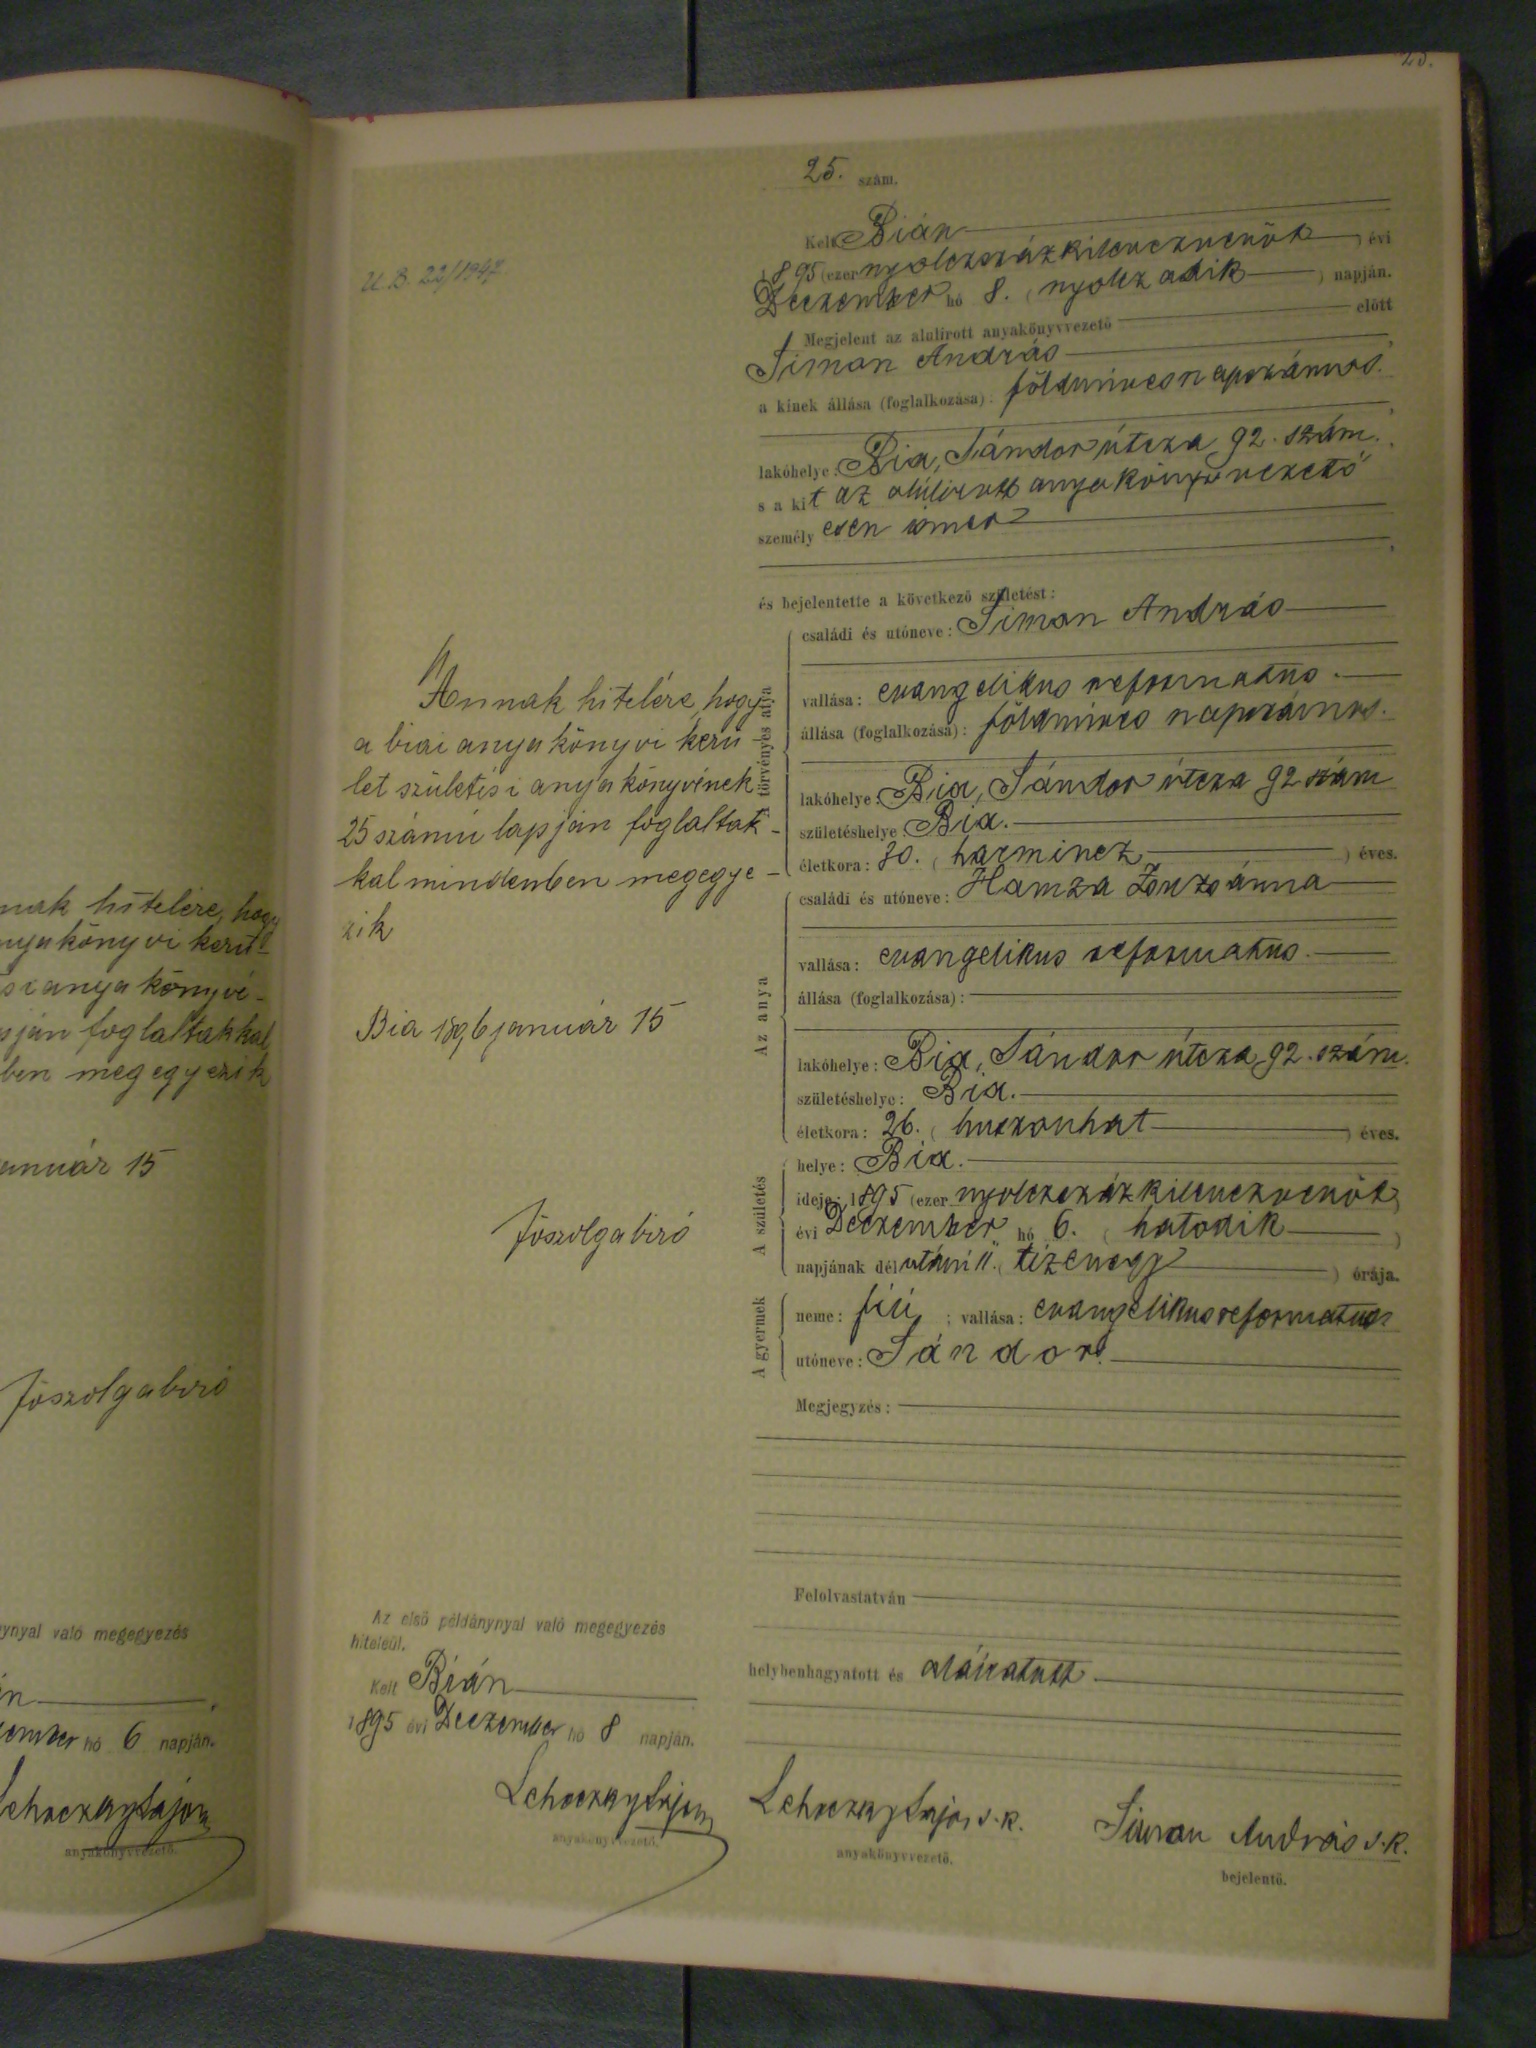 nak hitelére, hogy
nyakönyvi kerül-
si anyakönyvé-
pján foglaltakkal
ben megegyezik
anuár 15
főszolgabiró
ynyal való megegyezés
án
cember hó 6 napján.
Lehoczky Lajos
anyakönyvvezető.
U. B. 22/1947.
Annak hitelére, hogy
a biai anyakönyvi kerü-
let születési anyakönyvének
25 számú lapján foglaltak-
kal mindenben megegye-
zik
Bia 1896 január 15
főszolgabiró
Az első példánynyal való megegyezés
hiteléül.
Kelt Bián
1895 évi Deczember hó 8 napján.
Lehoczky Lajos
anyakönyvvezető.
25.
25. szám.
Kelt Bián
1895 (ezer nyolczszázkilenczvenöt) évi
Deczember hó 8. (nyolczadik) napján.
Megjelent az alulírott anyakönyvvezető előtt
Simon András,
a kinek állása (foglalkozása): földmives napszámos.
lakóhelye: Bia, Sándor útcza 92. szám.
s a kit az alúlirott anyakönyvvezető
személyesen ismer
és bejelentette a következő születést:
A törvényes atya
családi és utóneve: Simon András
vallása: evangelikus reformatus.
állása (foglalkozása): földmives napszámos.
lakóhelye: Bia, Sándor útcza 92 szám
születéshelye: Bia.
életkora: 30. (harmincz) éves.
Az anya
családi és utóneve: Hamza Zsuzsánna
vallása: evangelikus reformatus.
állása (foglalkozása):
lakóhelye: Bia, Sándor útcza 92. szám.
születéshelye: Bia.
életkora: 26. (huszonhat) éves.
A születés
helye: Bia.
ideje: 1895 (ezer nyolczszázkilenczvenöt)
évi Deczember hó 6. (hatodik)
napjának délutáni 11. (tizenegy) órája.
A gyermek
neme: fiú; vallása: evangelikus reformatus
utóneve: Sándor.
Megjegyzés:
Felolvastatván
helybenhagyatott és aláiratott
Lehoczky Lajos s. k.
anyakönyvvezető.
Simon András s. k.
bejelentő.